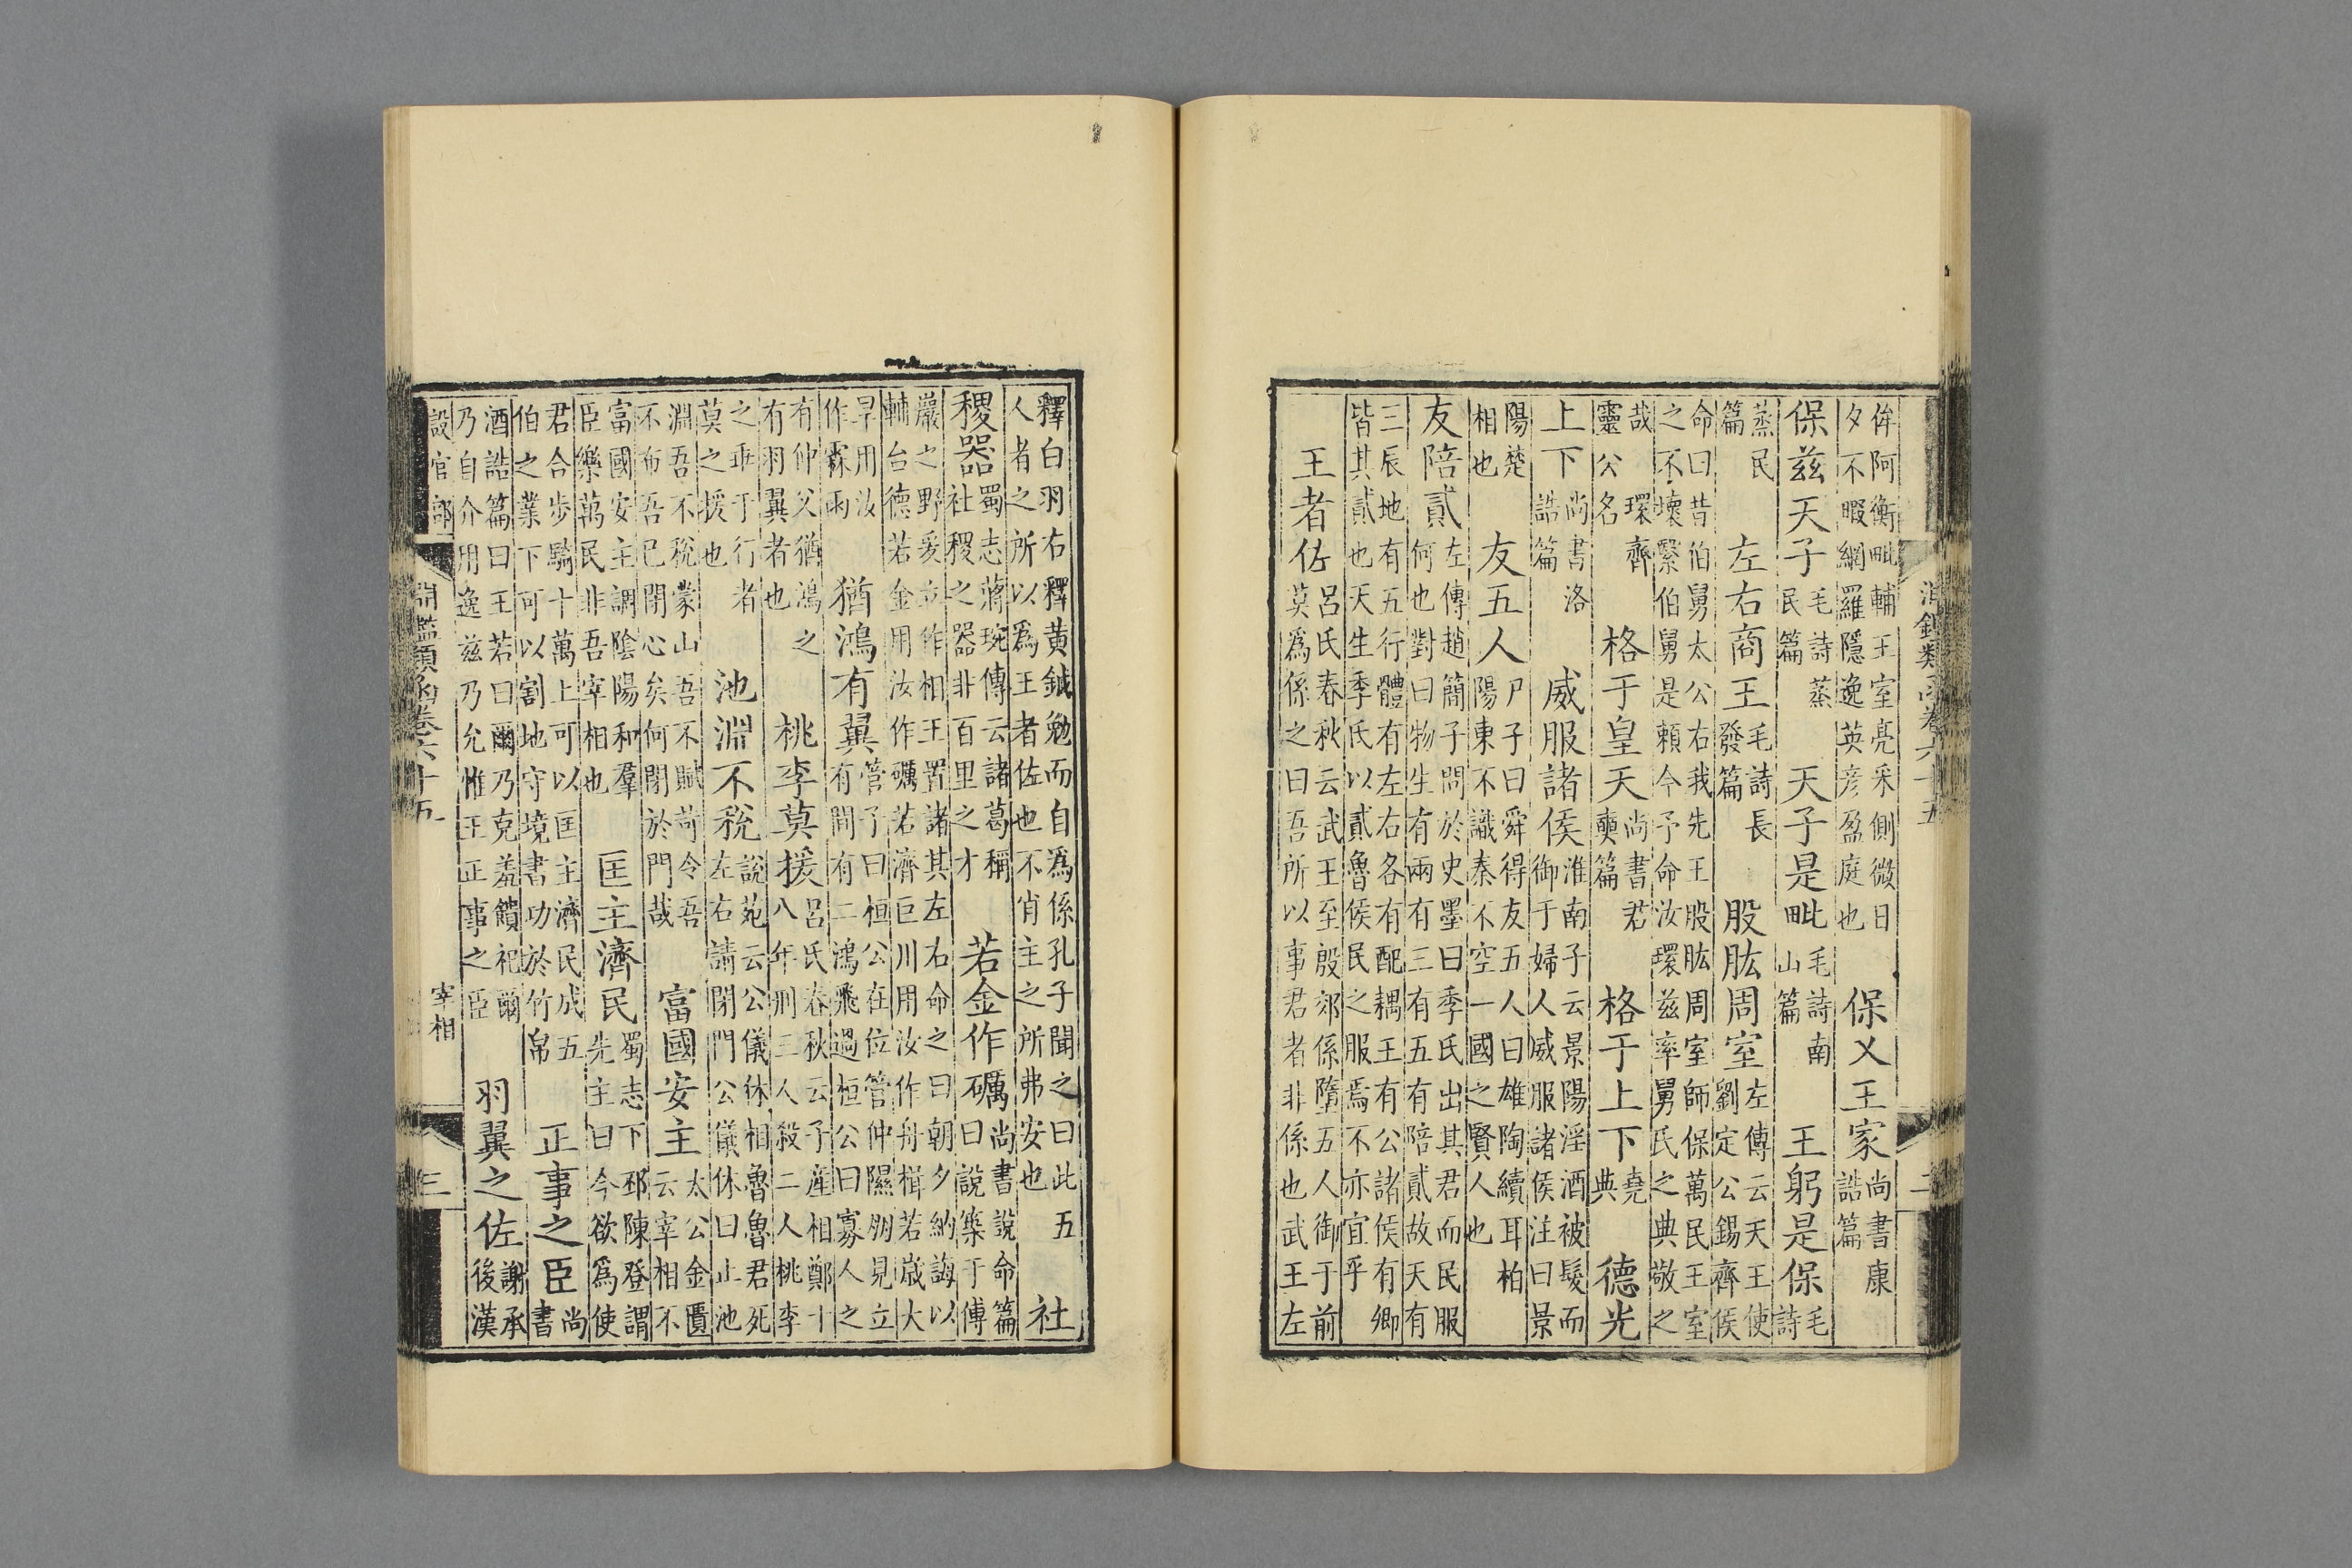 侔阿衡毗輔王室亮采側微日
夕不暇網羅隱逸英彦盈庭也
保乂王家
尚書康
誥篇
保兹天子
毛詩蒸
民篇
天子是毗
毛詩南
山篇
王躬是保
毛
詩
蒸民
篇
左右商王
毛詩長
發篇
股肱周室
左傳云天王使
劉定公錫齊侯
命曰昔伯舅太公右我先王股肱周室師保萬民王室
之不壞繄伯舅是賴今予命汝環兹率舅氏之典敬之
哉環齊
靈公名
格于皇天
尚書君
奭篇
格于上下
堯
典
德光
上下
尚書洛
誥篇
威服諸侯
淮南子云景陽淫酒被髮而
御于婦人威服諸侯注曰景
陽楚
相也
友五人
尸子曰舜得友五人曰雄陶續耳柏
陽東不識秦不空一國之賢人也
友陪貳
左傳趙簡子問於史墨曰季氏出其君而民服
何也對曰物生有兩有三有五有陪貳故天有
三辰地有五行體有左右各有配耦王有公諸侯有卿
皆其貳也天生季氏以貳魯侯民之服焉不亦宜乎
王者佐
呂氏春秋云武王至殷郊係墮五人御于前
莫爲係之曰吾所以事君者非係也武王左
釋白羽右釋黃鉞勉而自爲係孔子聞之曰此五
人者之所以爲王者佐也不肖主之所弗安也
社
稷器
蜀志蔣琬傳云諸葛稱
社稷之器非百里之才
若金作礪
尚書說命篇
曰說築于傅
巖之野爰立作相王置諸其左右命之曰朝夕納誨以
輔台德若金用汝作礪若濟巨川用汝作舟楫若歲大
旱用汝
作霖雨
猶鴻有翼
管子曰桓公在位管仲隰朋見立
有間有二鴻飛過桓公曰寡人之
有仲父猶鴻之
有羽翼者也
桃李莫援
呂氏春秋云子產相鄭十
八年刑三人殺二人桃李
之垂于行者
莫之援也
池淵不稅
說苑云公儀休相魯魯君死
左右請閉門公儀休曰止池
淵吾不稅蒙山吾不賦苛令吾
不布吾已閉心矣何閉於門哉
富國安主
太公金匱
云宰相不
富國安主調陰陽和羣
臣樂萬民非吾宰相也
匡主濟民
蜀志下邳陳登謂
先主曰今欲爲使
君合步騎十萬上可以匡主濟民成五
伯之業下可以割地守境書功於竹帛
正事之臣
尚
書
酒誥篇曰王若曰爾乃克羞饋祀爾
乃自介用逸兹乃允惟王正事之臣
羽翼之佐
謝承
後漢
設官部
淵鑑類函卷六十五
宰相
三